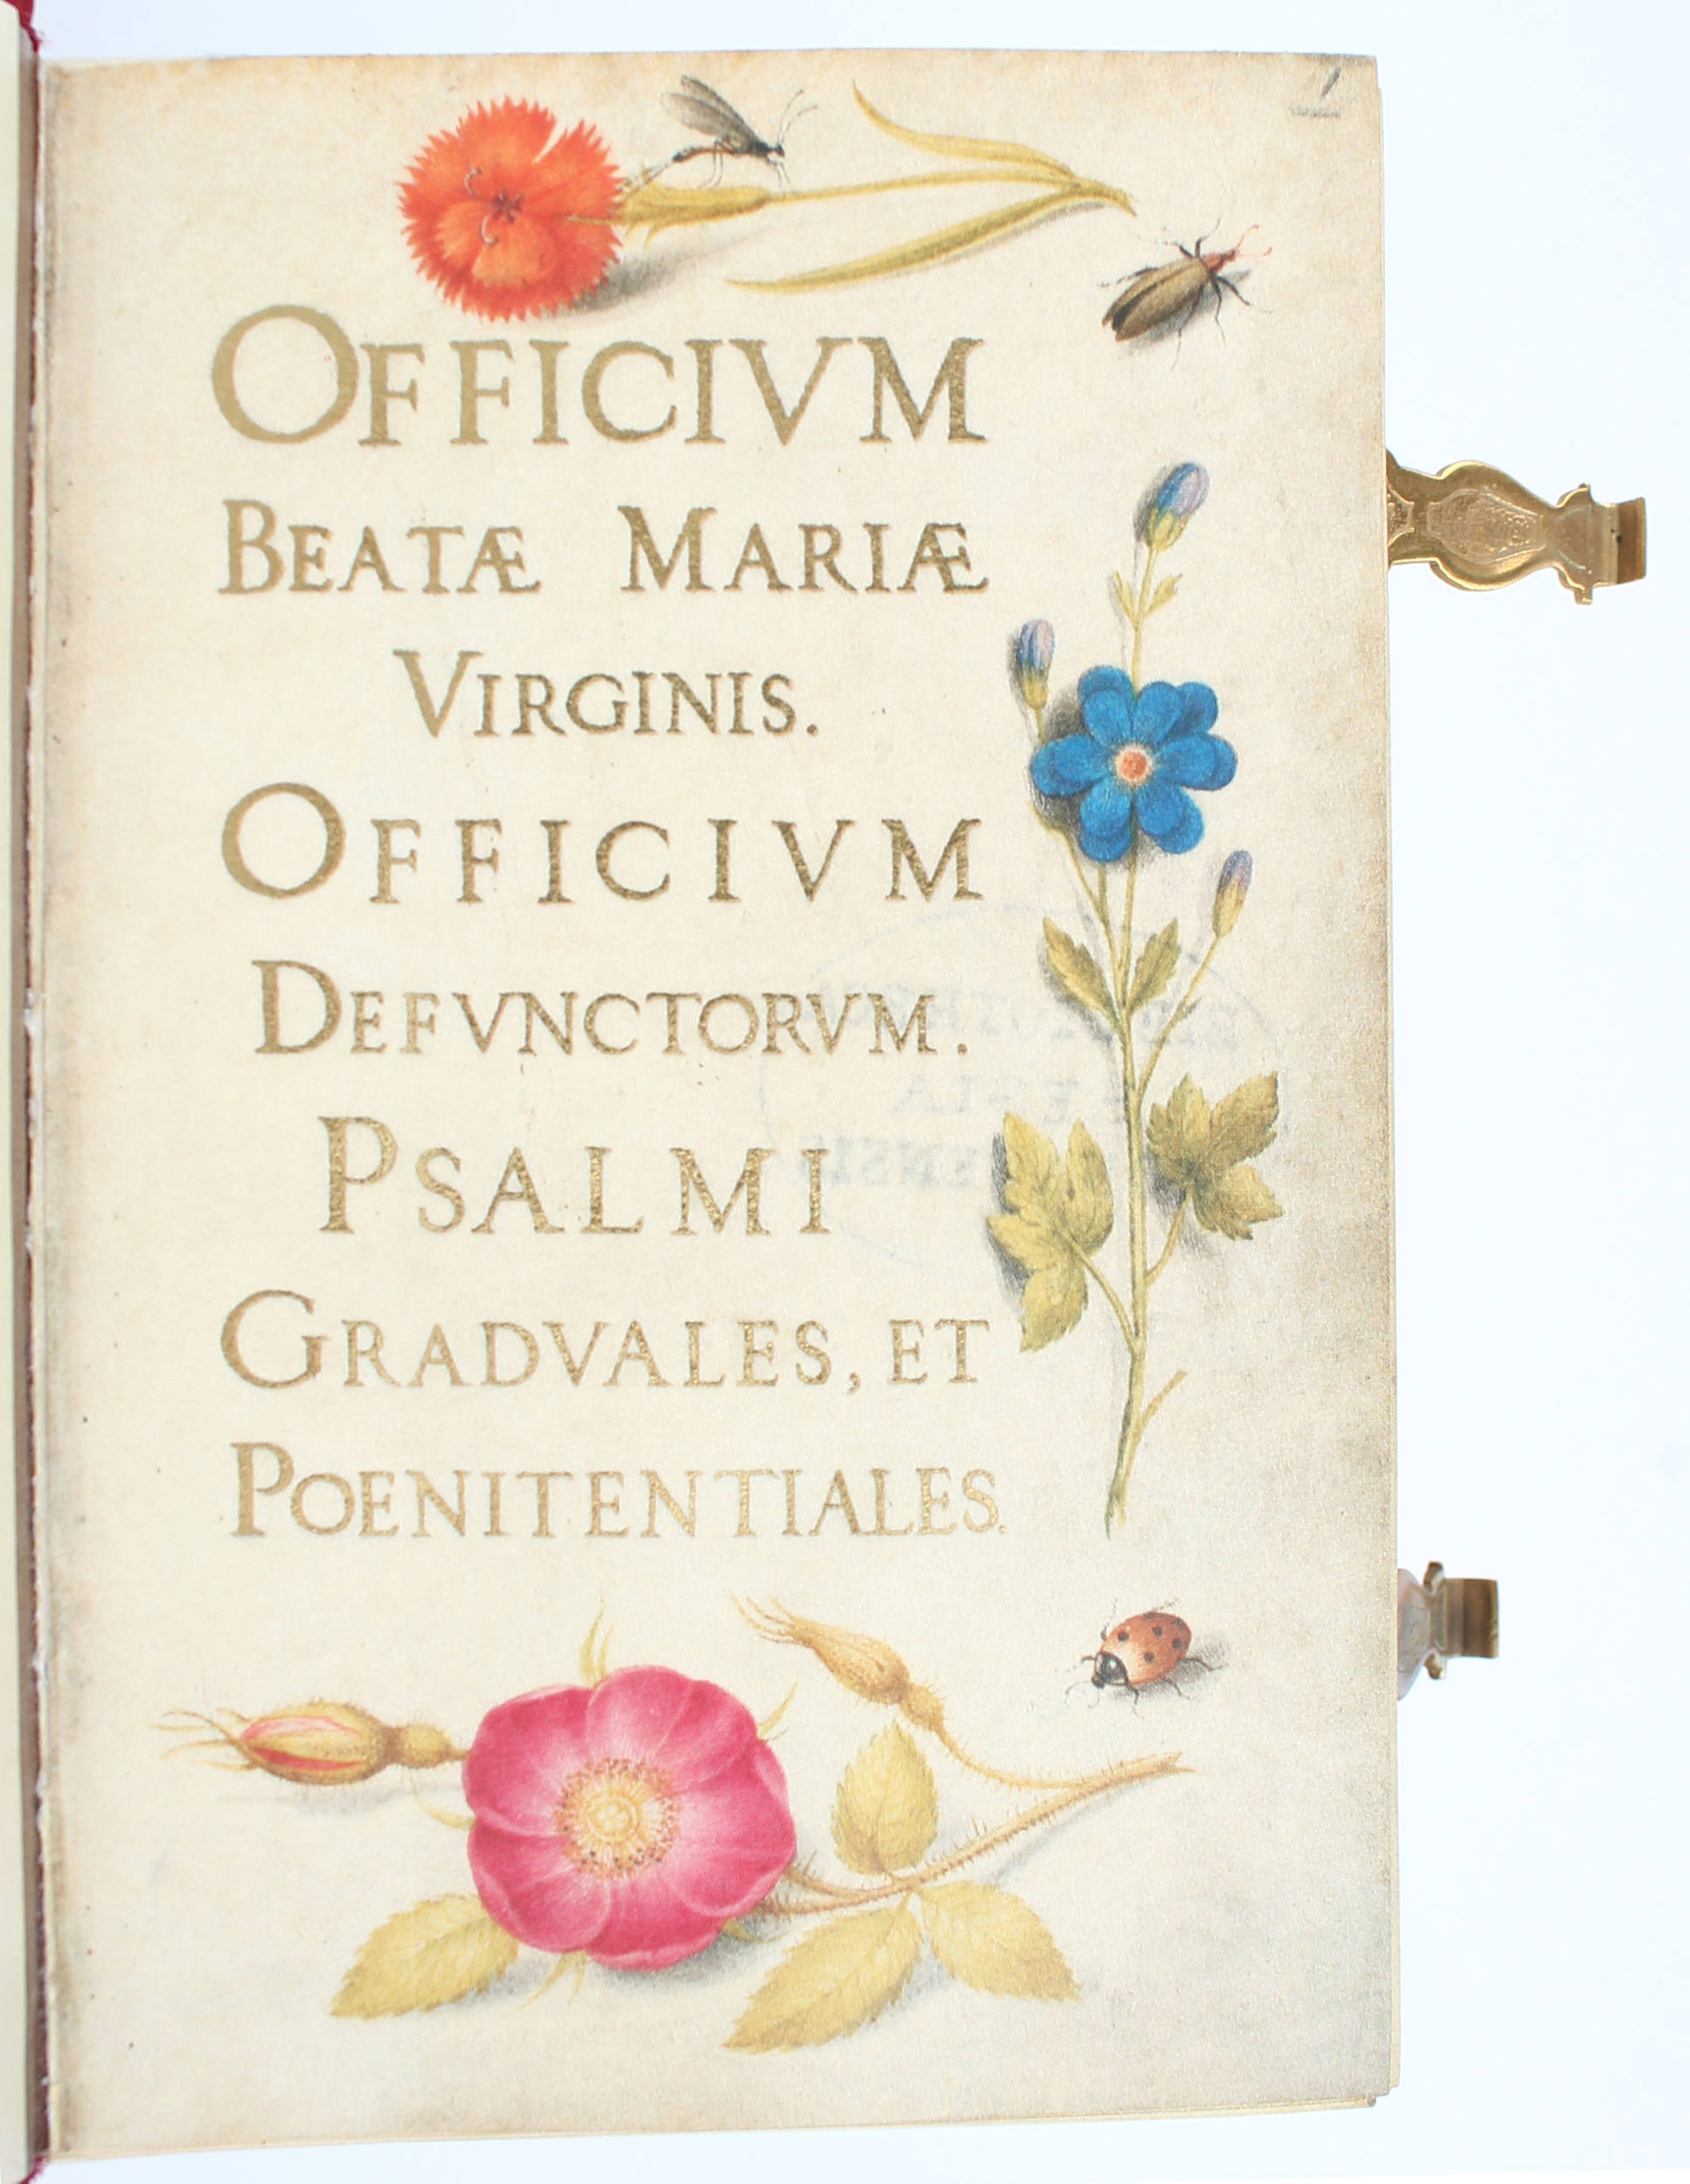 1
OFFICIVM
BEATÆ MARIÆ
VIRGINIS.
OFFICIVM
DEFVNCTORVM.
PSALMI
GRADVALES, ET
POENITENTIALES.